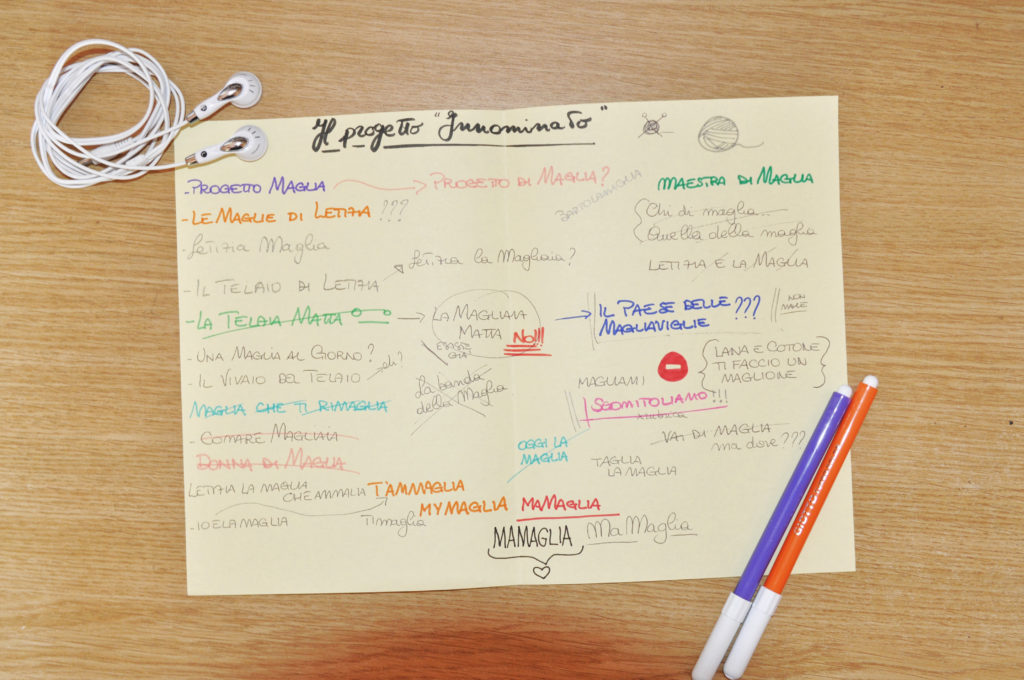 Il progetto "Innominato"
- PROGETTO MAGLIA
PROGETTO DI MAGLIA?
BARTOLAMAGLIA
MAESTRA DI MAGLIA
- LE MAGLIE DI LETIZIA ???
Chi di maglia...
Quella della maglia
- Letizia Maglia
Letizia la Magliaia?
LETIZIA E LA MAGLIA
- IL TELAIO DI LETIZIA
- LA TELAIA MATTA
LA MAGLIAIA
MATTA
NO!!!
ESISTE
GIÀ
IL PAESE DELLE
MAGLIAVIGLIE
???
NON
MALE
- UNA MAGLIA AL GIORNO?
- IL VIVAIO DEL TELAIO
La banda
della Maglia
MAGLIAMI
LANA E COTONE
TI FACCIO UN
MAGLIONE
MAGLIA CHE TI RIMAGLIA
SGOMITOLIAMO!!!
rubrica
- COMARE MAGLIAIA
OGGI LA
MAGLIA
VAI DI MAGLIA
ma dove???
DONNA DI MAGLIA
TAGLIA
LA MAGLIA
LETIZIA LA MAGLIA
CHE AMMALIA
T'AMMAGLIA
MYMAGLIA
MAMAGLIA
- IO E LA MAGLIA
TI maglia
MAMAGLIA
MaMaglia
GIOTTO